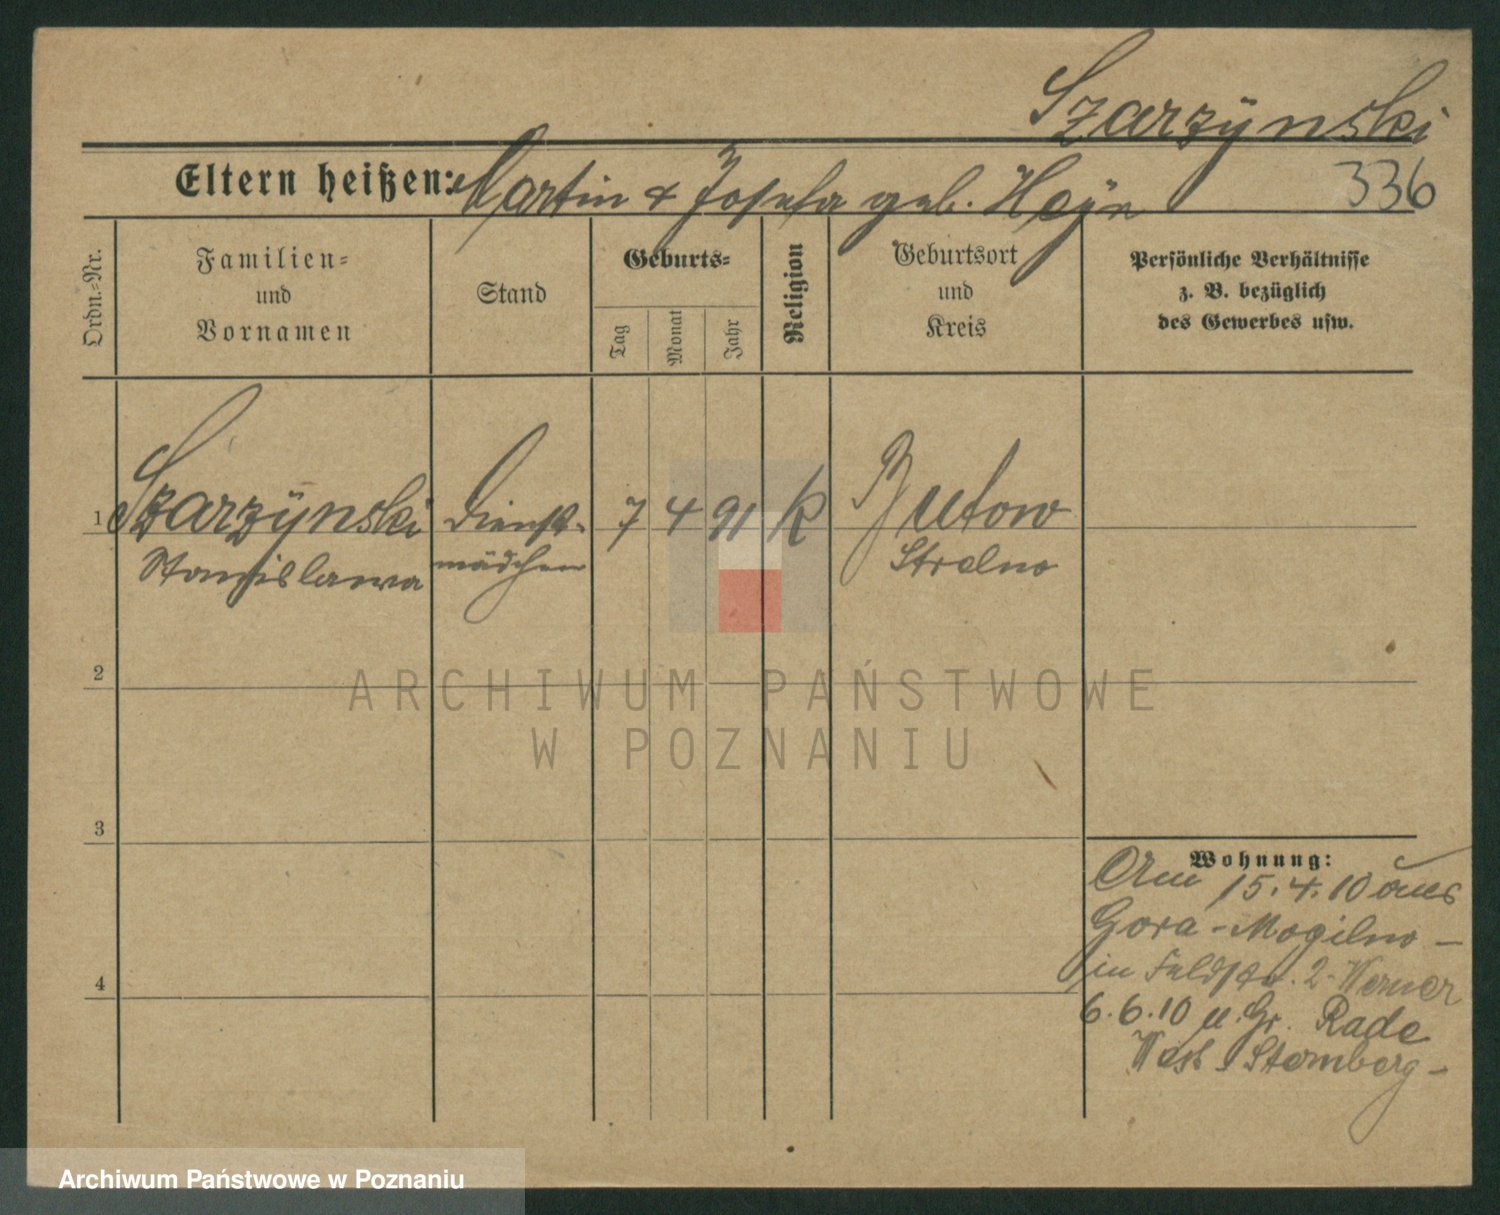 Szarzÿnski
Eltern heißen: Martin & Josefa geb. Heÿn
336
Ordn.-Nr.
Familien-
und
Vornamen
Stand
Geburts-
Tag
Monat
Jahr
Religion
Geburtsort
und
Kreis
Persönliche Verhältnisse
z. B. bezüglich
des Gewerbes usw.
1 Szarzÿnski Dienst- 7 4 91 K Butow
Stanislawa mädchen Strelno
2
3
4
Wohnung:
Am 15.4.10 aus
Gora-Mogilno -
in Feldstr. 2-Werner
6.6.10 n. Gr. Rade
West Sternberg-
ARCHIWUM PAŃSTWOWE
W POZNANIU
Archiwum Państwowe w Poznaniu